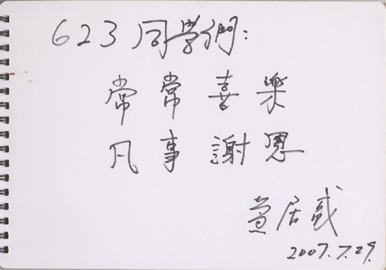 623同學們：
常常喜樂
凡事謝恩
2007.7.29.